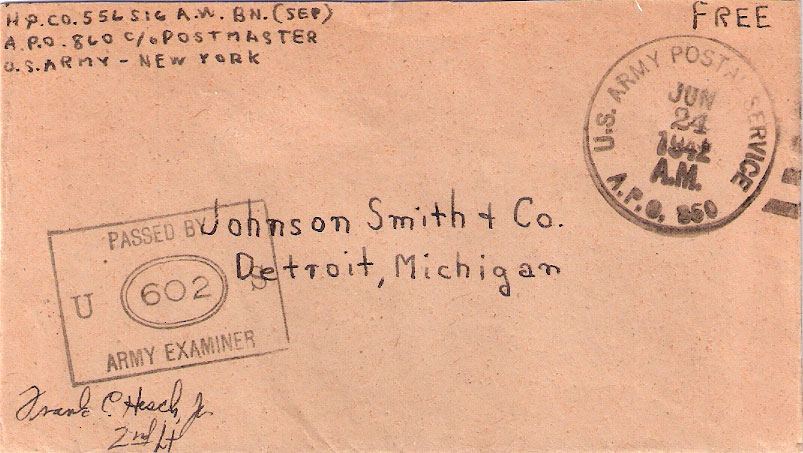 HP.CO. 556 SIG A.W. BN. (SEP)
A.P.O. 860 C/o POSTMASTER
U.S. ARMY - NEW YORK
FREE
U.S. ARMY POSTAL SERVICE
JUN
24
1942
A.M.
A.P.O. 860
Johnson Smith & Co.
Detroit, Michigan
PASSED BY
U 602 S
ARMY EXAMINER
Frank C. Hesch, Jr.
2nd Lt